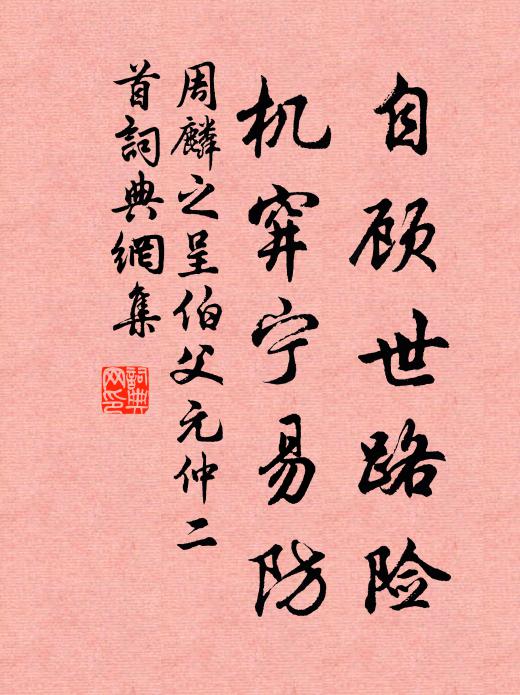 自顾世路险
机穽宁易防
周麟之呈伯父元仲二
首詞典網集
詞典
网印